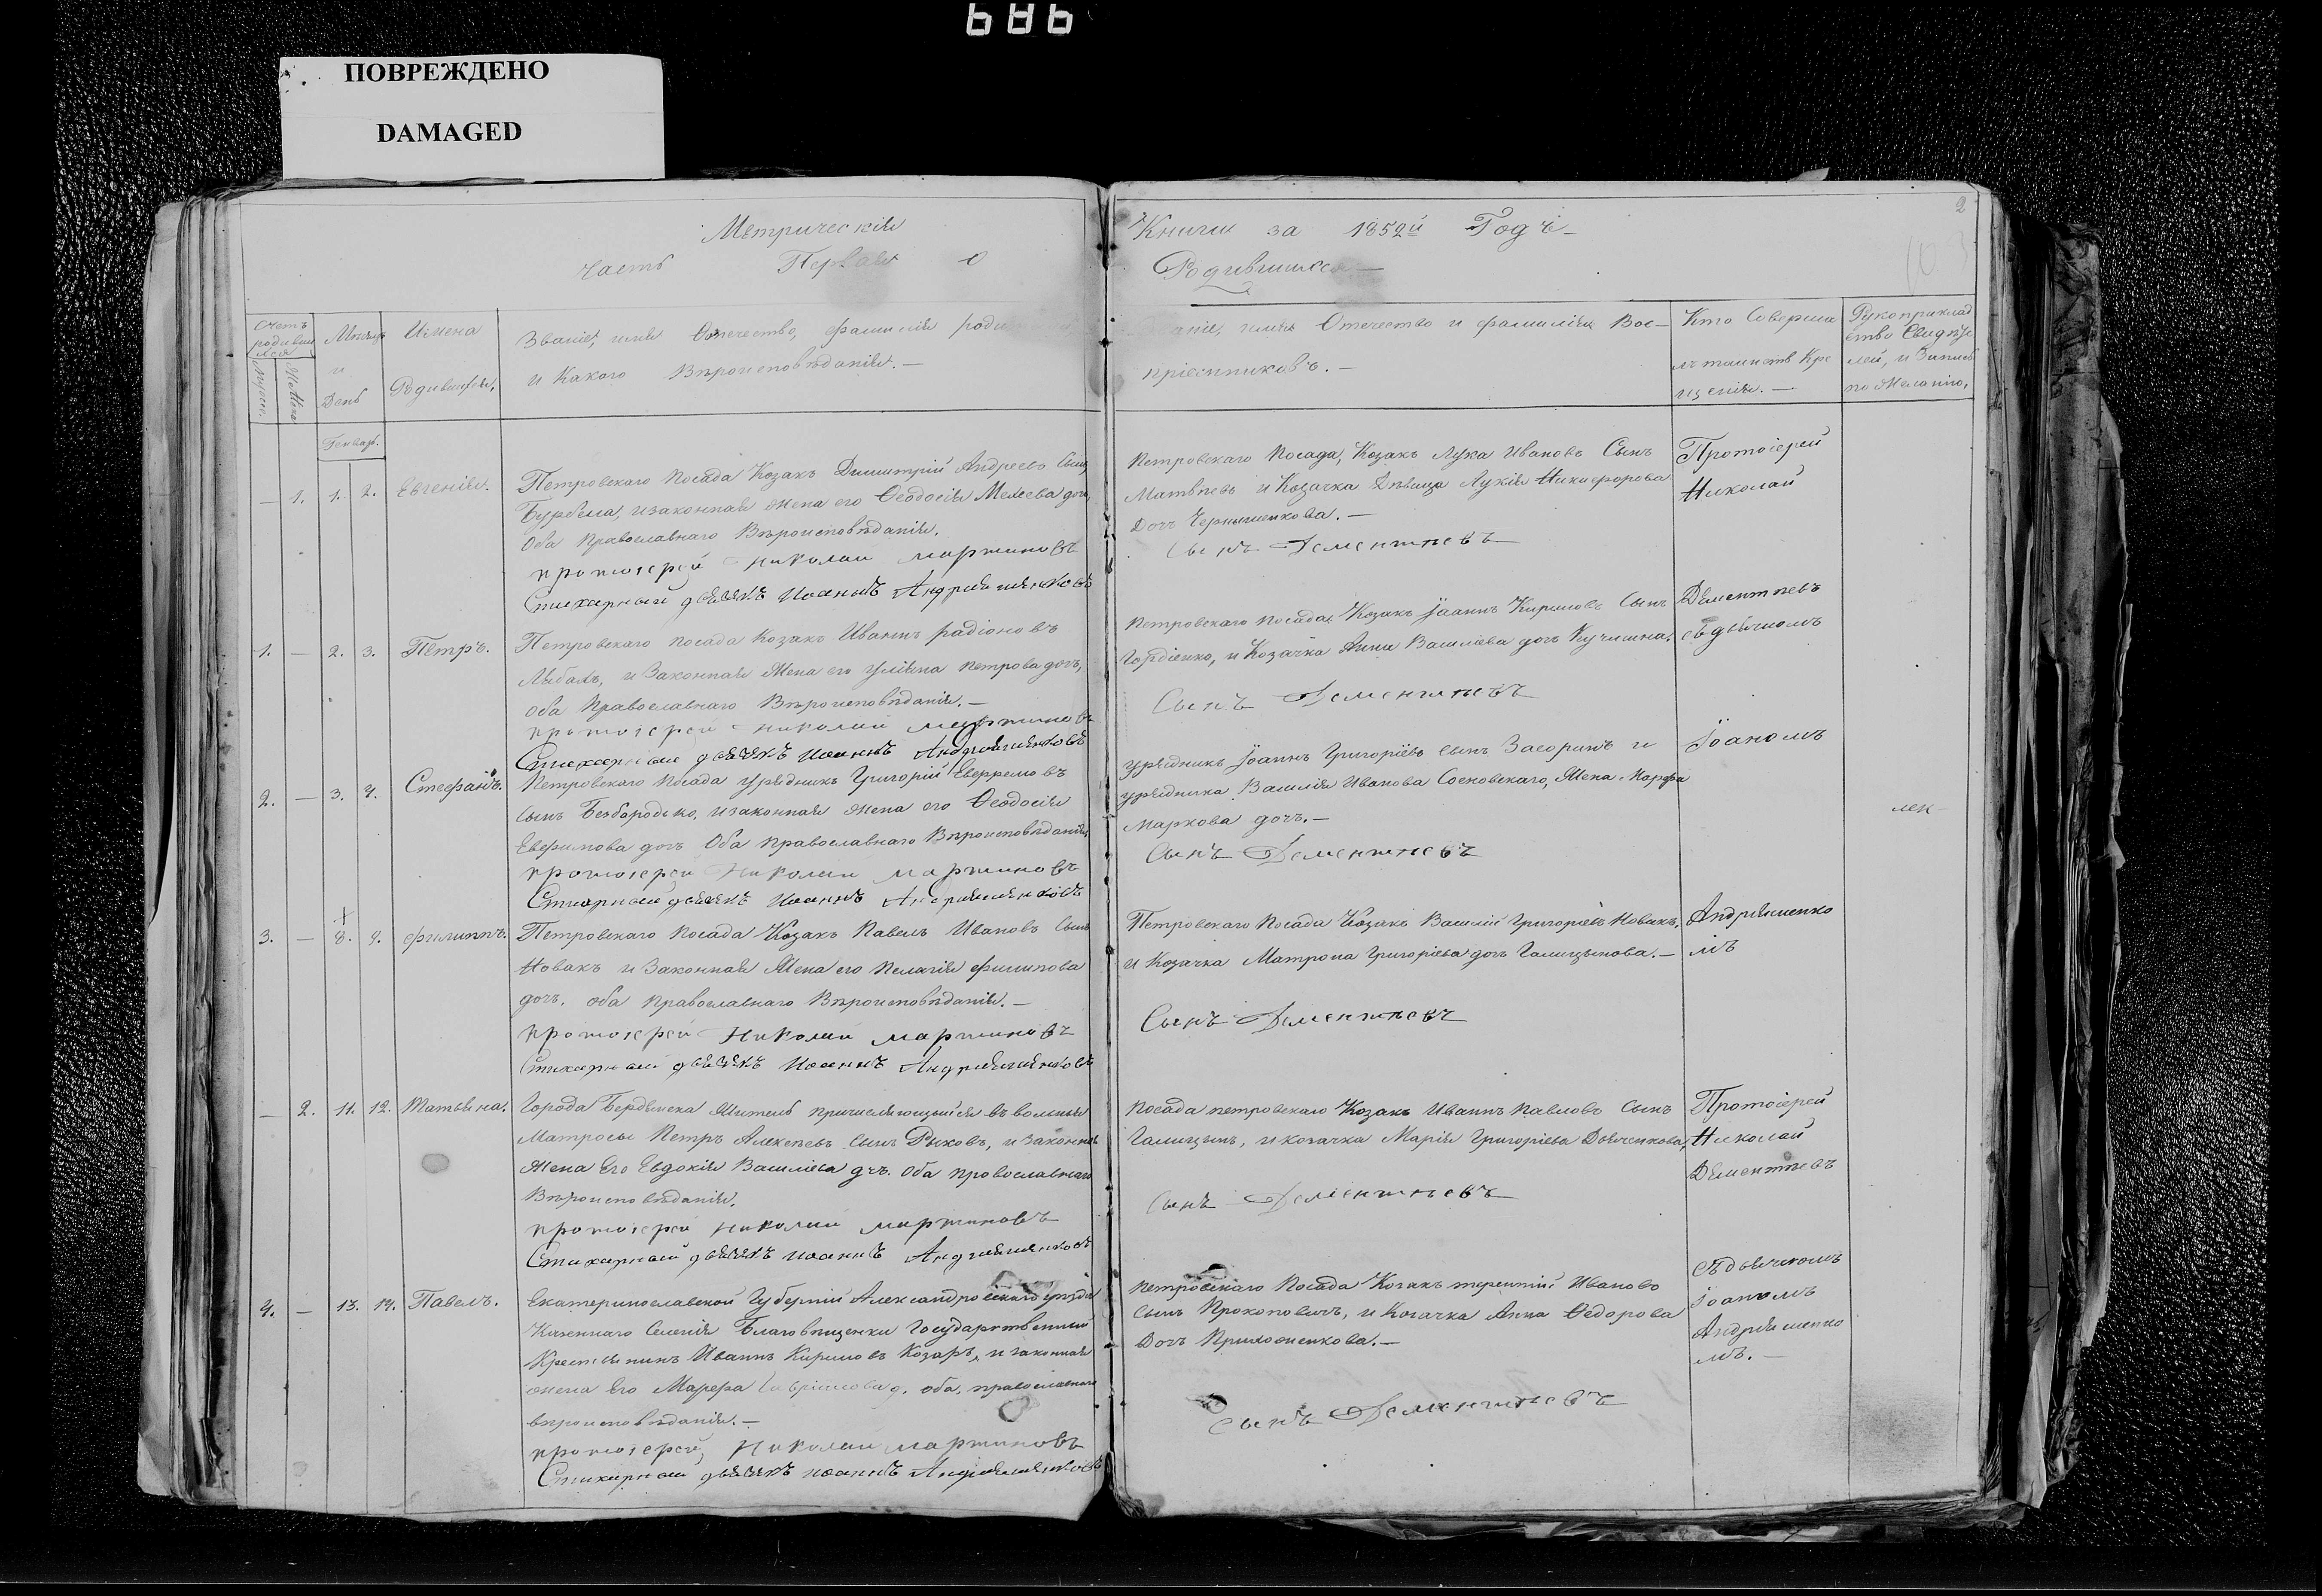 686
ПОВРЕЖДЕНО
DAMAGED
2
Метрической Книги за 1852й Годъ
Часть Первая о Родившихся
Счетъ родивши
Мужес.
Женс
Мѣсяцъ
и
День
Имена
Родившихъ.
Званіе, имя Отечество, фамилія роди
и Какого Вѣроисповѣданія.
имя Отечество и фамилія Вос-
пріемниковъ.
Кто Соверша
лъ таинств Кре
щенія.
Рукоприклад
ство Свидѣте
лей, и Запись
по желанію.
Генварь.
— 1. 1. 2. Евгенія.
Петровскаго Посада Козакъ Димитрій Андреевъ Сынъ
Бурбела, изаконная жена его Ѳеодосія доч,
Оба Православнаго Вѣроисповѣданія.
протоіерей Николай мартиновъ
Стихарный дьячекъ Иоаннъ Андріяшенковъ
Петровскаго Посада, Козакъ Лука Ивановъ Сынъ
Матвѣевъ и Козачка Дѣвица Лукія Никифорова
Дочь Чернышенкова.
Сынъ Дементьевъ
Протоіерей
Николай
1. — 2. 3. Петръ.
Петровскаго посада Козакъ Иваннъ радіоновъ
Лыбахъ, и Законная Жена его Уліяна петрова дочь,
оба Православнаго Вѣроисповѣданія.
протоіерей Николай мартиновъ
Стихарный дьячекъ Иоаннъ Андріяшенковъ
петровскаго посада Козакъ Іоаннъ Кириловъ Сынъ
Гордіенко, и Козачка Анна Василіева дочь Кучинина.
Сынъ Дементьевъ
Дементьевъ
съ дьячкомъ
2. — 3. 4. Стефанъ.
Петровскаго Посада урядникъ Григорій Еверремовъ
сынъ Безбородько, изаконная жена его Ѳеодосія
Евфимова дочь Оба православнаго Вѣроисповѣданія
протоіерей Николай мартиновъ
Стиарный дьячекъ Иоаннъ Андріяшенковъ
урядникъ Іоаннъ Григоріевъ сынъ Засоринъ и
урядника Василія Иванова Сосновскаго, Жена Марфа
Маркова дочь.
Сынъ Дементьевъ
Іоаномъ
3. — 8. 9. Филиппъ.
Петровскаго Посада Козакъ Павелъ Ивановъ Сынъ
Новакъ и Законная Жена его Пелагія Филипова
дочь. оба Православнаго Вѣроисповѣданія.
протоіерей Николай мартиновъ
Стихарный дьячекъ Иоаннъ Андріяшенковъ
Петровскаго Посада Козакъ Василій Григоріевъ Новакъ,
и Козачка Матрона Григоріева дочь Галицынова.
Сынъ Дементьевъ
Андріяшенко
мъ
— 2. 11. 12. Татьяна.
Города Бердянска Житель причисляющыйся въ вольныя
Матросы Петръ Алексѣевъ Сынъ Рыковъ, и законная
Жена Его Евдокія Василіева дчь. Оба провославнаго
Вѣроисповѣданія.
протоіерей Николай мартиновъ
Стихарный дьячекъ Иоаннъ Андріяшенковъ
Посада петровскаго Козакъ Иваннъ Павловъ Сынъ
Галицынъ, и козачка Марія Григоріева Дьяченкова,
Сынъ Дементьевъ
Протоіерей
Николай
Дементьевъ
4. — 13. 14. Павелъ.
Екатеринославской Губерніи Александровскаго уѣзда
Казеннаго Селенія Благовѣщенки Государственный
Крестьянинъ Иваннъ Кириловъ Козаръ, и законная
жена Его Марфа Гавріилова д. оба, православнаго
вѣроисповѣданія.
протоіерей, Николай мартиновъ
Стихарный дьячекъ иоаннъ Андріяшенковъ
Петровскаго Посада Козакъ терентій Ивановъ
Сынъ Прокоповичъ, и Козачка Анна Ѳедорова
Дочь Приложенкова.
Сынъ Дементьевъ
съ дьячкомъ
Іоаномъ
Андріяшенко
мъ.